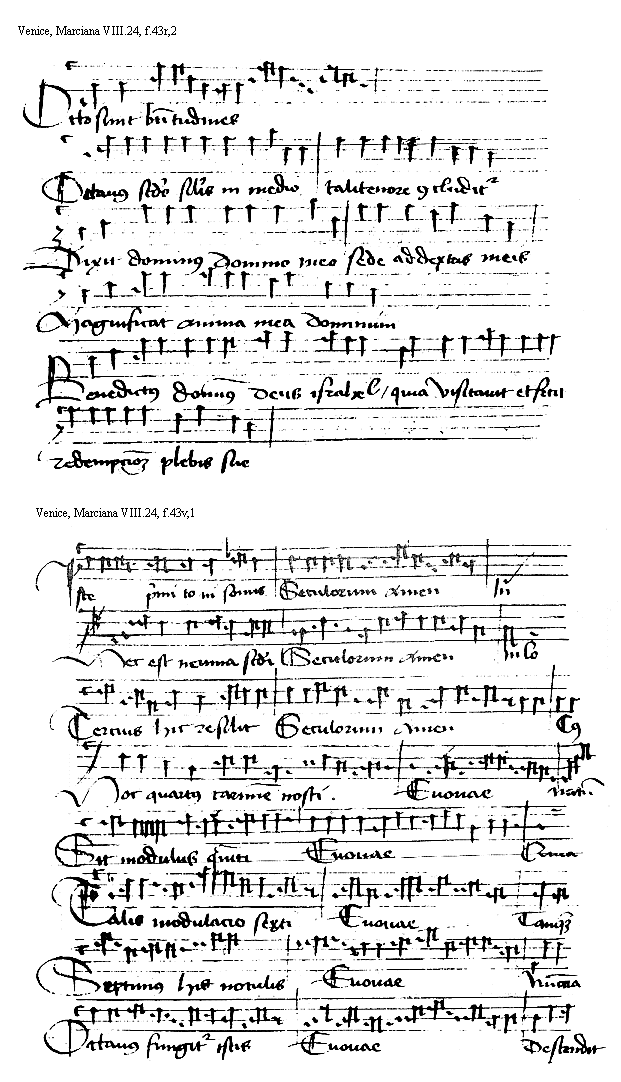 Venice, Marciana VIII.24, f.43r,2
Octo sunt btitudines
Octauus sedet sol's in medio talitenore ɔcludit
Dixit dominus domino meo sede ad dextris meis
Magnificat anima mea dominum
Benedictus domin9 deus israhel / quia visitauit et fecit
redempcioꝫ plebis sue
Venice, Marciana VIII.24, f.43v,1
Iste primi to ni sonus Seculorum amen
Hec est neuma Seculorum amen In lo
Tercius hic resilit Seculorum amen
Hoc quartus carmine nosti. Euouae
Sit modulus quinti Euouae
Talis modulacio sexti Euouae
Septimus his notulis Euouae
Octauus fungit istis Euouae Descendit